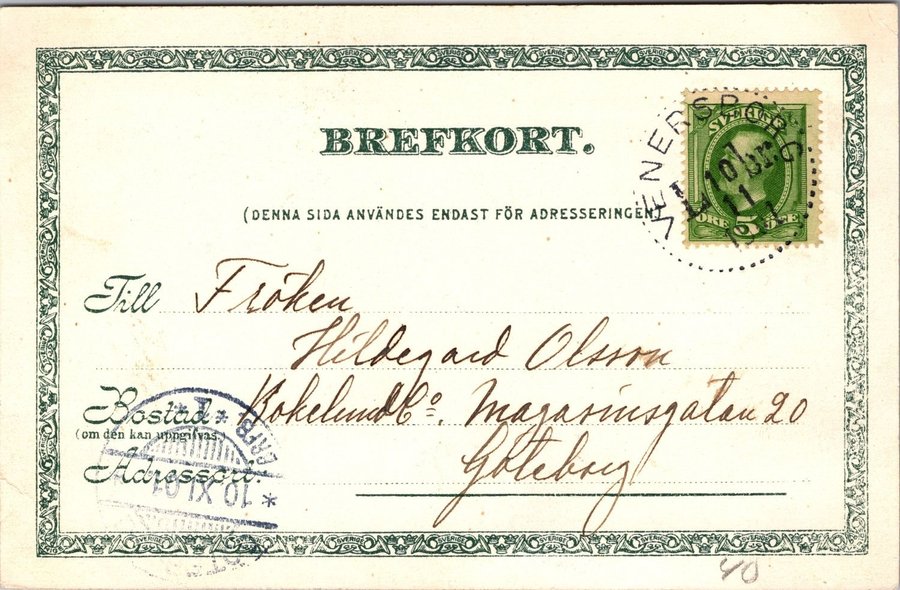 BREFKORT.
VENERSBORG
SVERIGE
10
11
ÖRE 5 ÖRE
(DENNA SIDA ANVÄNDES ENDAST FÖR ADRESSERINGEN)
Till Fröken
Hildegard Olsson
Bostad Kokelund & Co. Magasinsgatan 20
(om den kan uppgifvas)
Adressort. Göteborg
10 XI 01
40